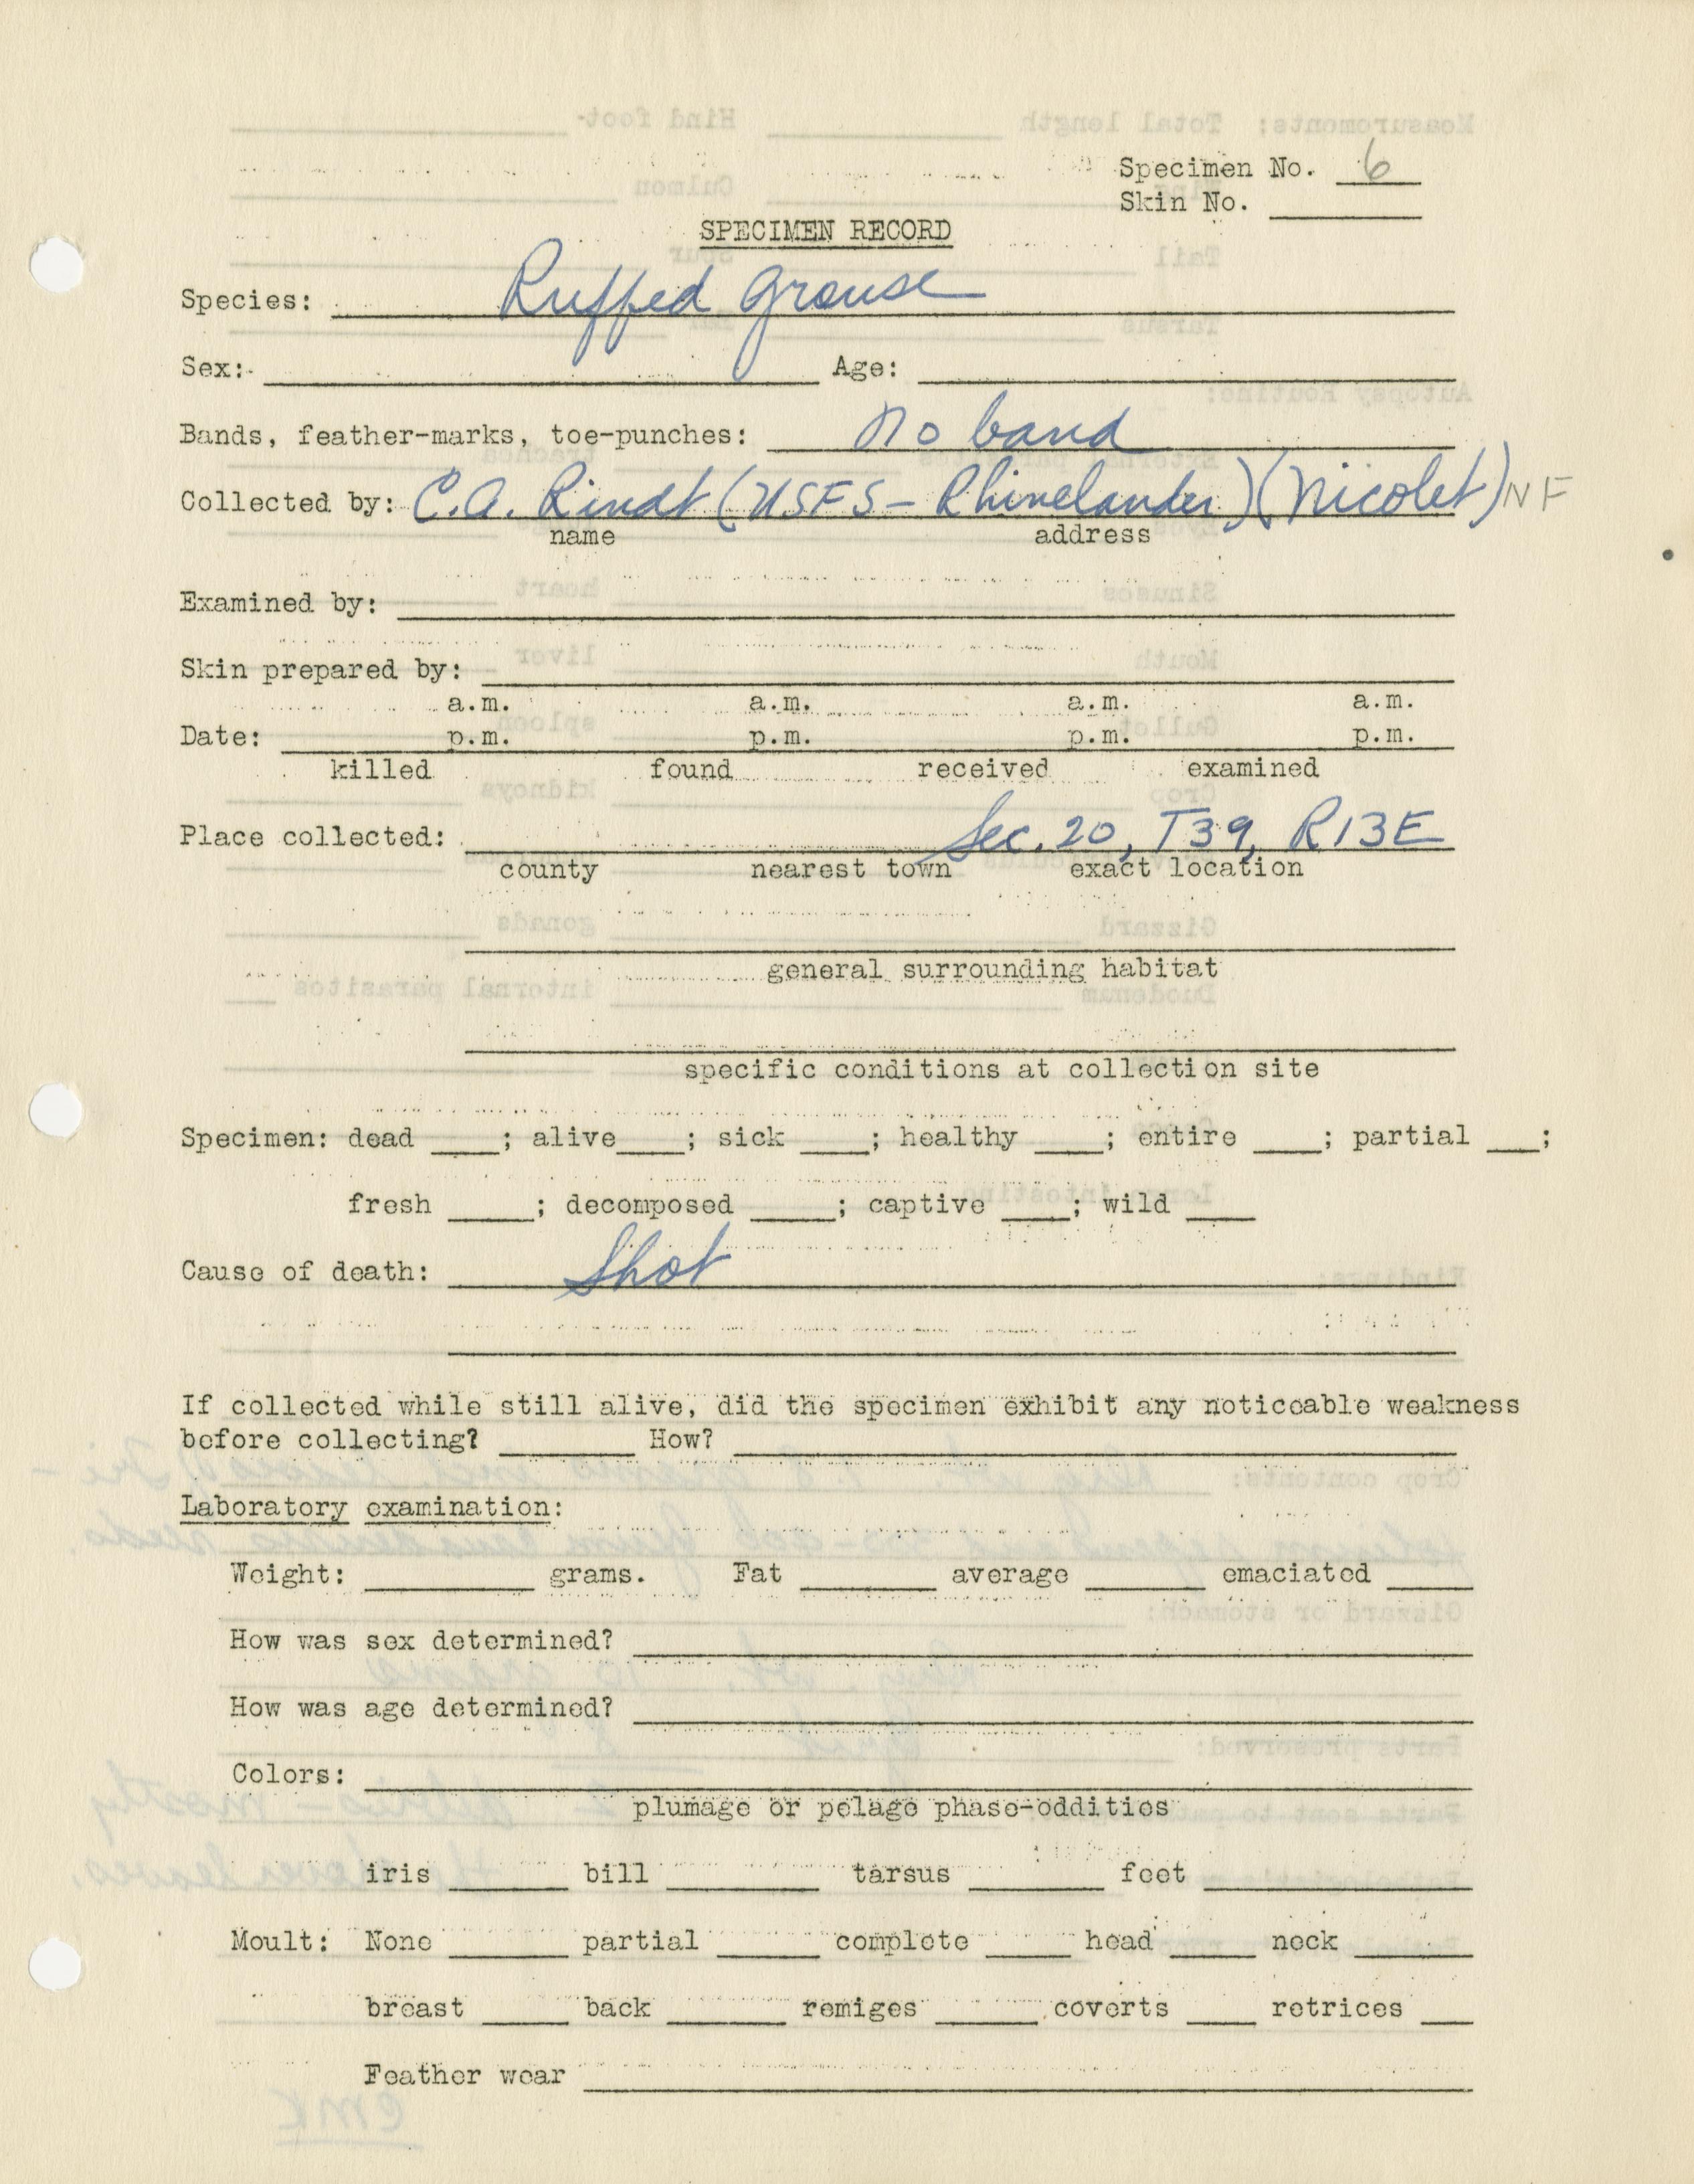 Specimen No. 6
Skin No. ____
SPECIMEN RECORD
Species: Ruffed grouse
Sex: ____ Age: ____
Bands, feather-marks, toe-punches: no band
Collected by: C.A. Rindt (USFS – Rhinelander) (Nicolet) NF
name address
Examined by: ____
Skin prepared by: ____
a.m. a.m. a.m. a.m.
Date: ____ p.m. p.m. p.m. p.m.
killed found received examined
Place collected: Sec. 20, T39, R13E
county nearest town exact location
general surrounding habitat
specific conditions at collection site
Specimen: dead ____; alive ____; sick ____; healthy ____; entire ____; partial ___;
fresh ____; decomposed ____; captive ____; wild ____
Cause of death: Shot
If collected while still alive, did the specimen exhibit any noticeable weakness
before collecting? ____ How? ____
Laboratory examination:
Weight: ____ grams. Fat ____ average ____ emaciated ____
How was sex determined? ____
How was age determined? ____
Colors: ____
plumage or pelage phase-oddities
iris ____ bill ____ tarsus ____ feet ____
Moult: None ____ partial ____ complete ____ head ____ neck ____
breast ____ back ____ remiges ____ coverts ____ retrices ____
Feather wear ____